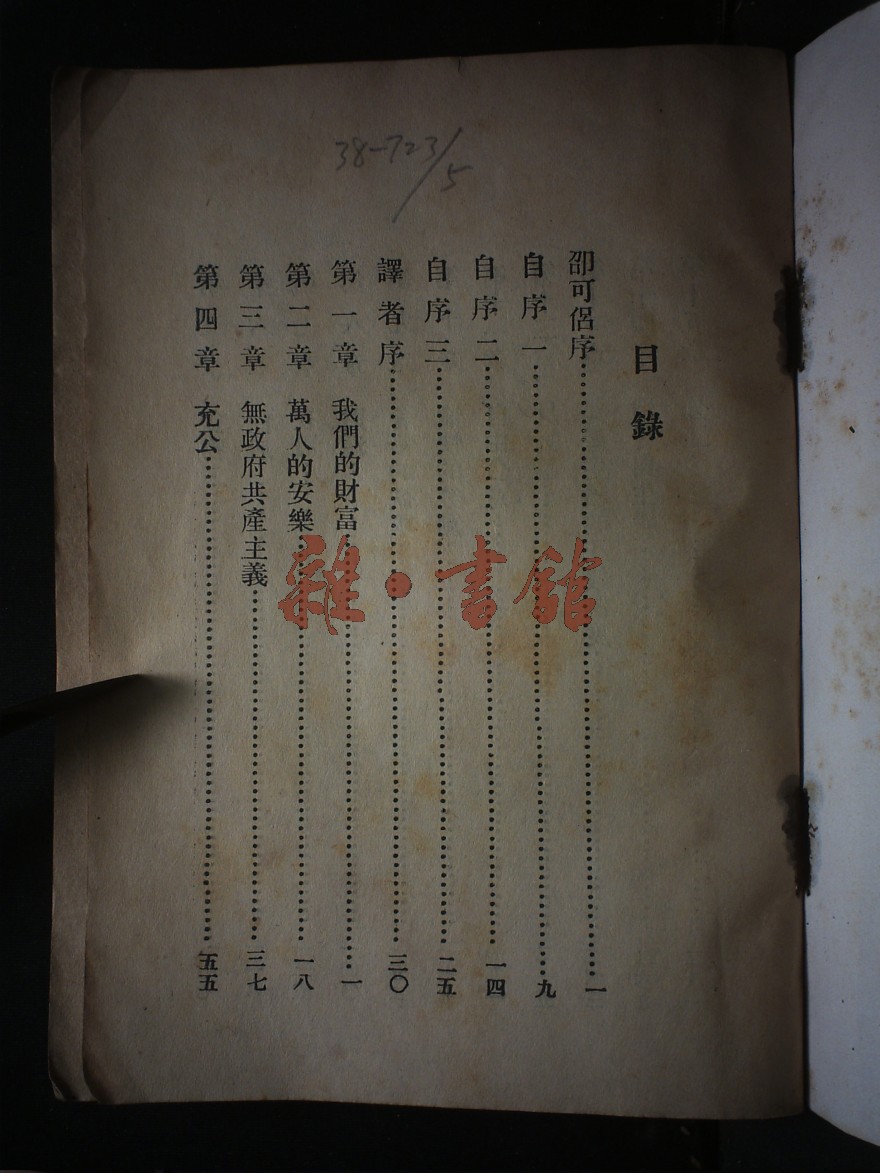 38-723/5
目錄
邵可侶序………一
自序一………九
自序二………一四
自序三………二五
譯者序………三〇
第一章 我們的財富………一
第二章 萬人的安樂………一八
第三章 無政府共產主義………三七
第四章 充公………五五
雜·書館